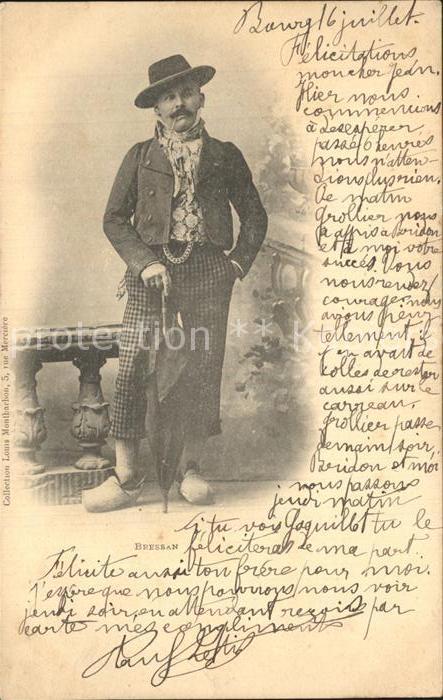 Bourg 16 juillet.
Félicitations
mon cher Jean.
Hier nous
commencions
à desespérer,
passé 6 heures
nous n'atten-
dions plus rien.
Ce matin
Grollier nous
a appris à Bridon
et à moi votre
succès. Vous
nous rendez
courage. nous
avions peur
tellement il
y en avait de
colles de rester
aussi sur le
carreau.
Grollier passe
demain soir,
Bridon et moi
nous passons
jeudi matin
Si tu vois Goguillot tu le
féliciteras de ma part.
Félicite aussi ton frère pour moi.
J'espère que nous pourrons nous voir
jeudi soir, en attendant reçois par
carte mes compliments
BRESSAN
Collection Louis Montbarbon, 5, rue Mercière
protection ** K